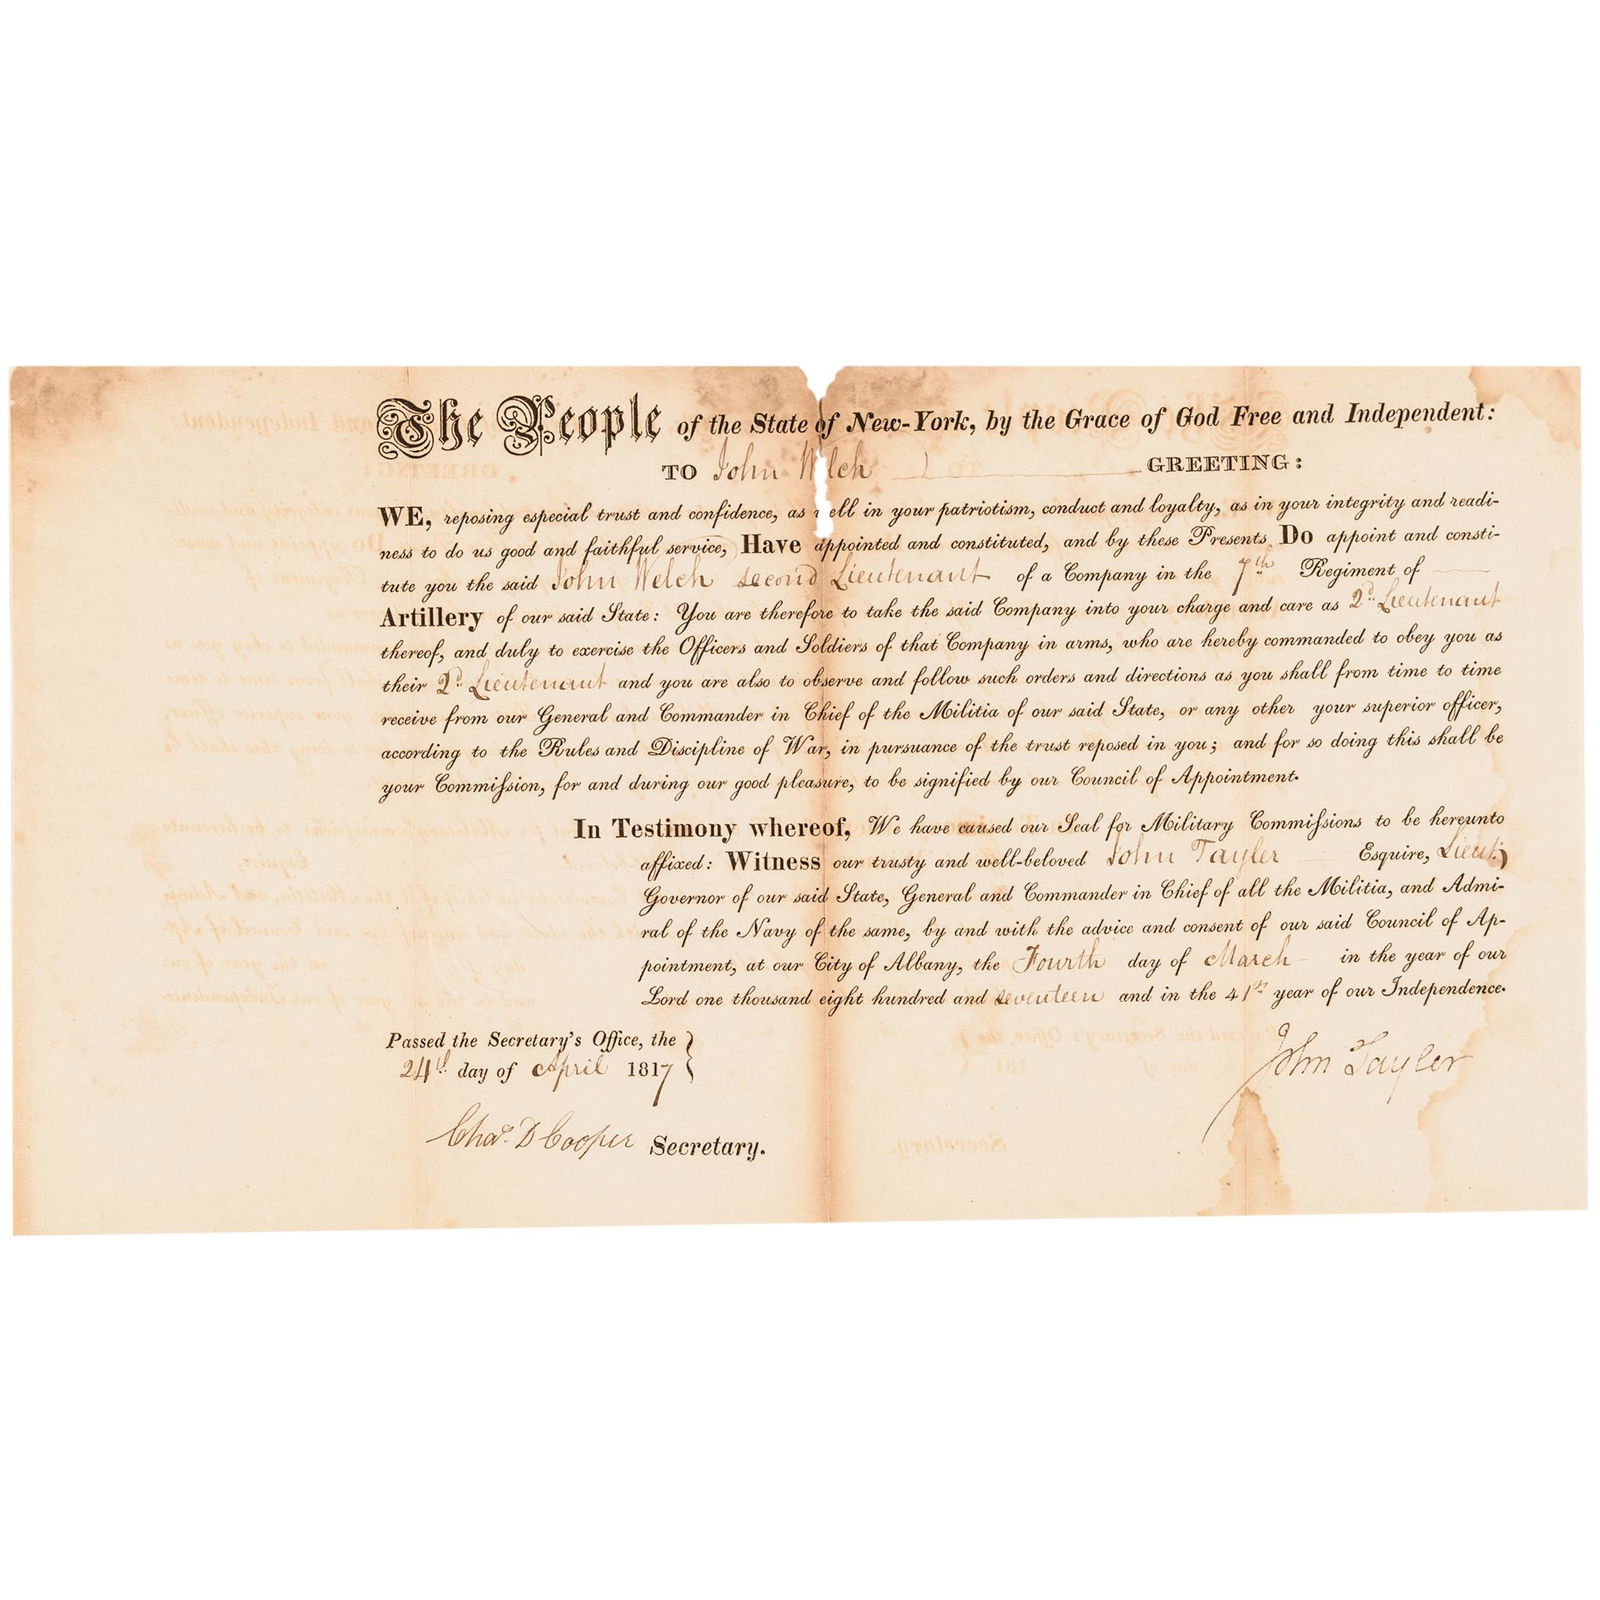 The People of the State of New-York, by the Grace of God Free and Independent:
TO John Welch GREETING:
WE, reposing especial trust and confidence, as well in your patriotism, conduct and loyalty, as in your integrity and readi-
ness to do us good and faithful service, Have appointed and constituted, and by these Presents, Do appoint and consti-
tute you the said John Welch second Lieutenant of a Company in the 7th Regiment of
Artillery of our said State: You are therefore to take the said Company into your charge and care as 2d Lieutenant
thereof, and duly to exercise the Officers and Soldiers of that Company in arms, who are hereby commanded to obey you as
their 2d Lieutenant and you are also to observe and follow such orders and directions as you shall from time to time
receive from our General and Commander in Chief of the Militia of our said State, or any other your superior officer,
according to the Rules and Discipline of War, in pursuance of the trust reposed in you; and for so doing this shall be
your Commiſsion, for and during our good pleasure, to be signified by our Council of Appointment.
In Testimony whereof, We have caused our Seal for Military Commiſsions to be hereunto
affixed: Witness our trusty and well-beloved John Tayler Esquire, Lieut.
Governor of our said State, General and Commander in Chief of all the Militia, and Admi-
ral of the Navy of the same, by and with the advice and consent of our said Council of Ap-
pointment, at our City of Albany, the Fourth day of March in the year of our
Lord one thousand eight hundred and seventeen and in the 41st year of our Independence.
Passed the Secretary's Office, the
24th day of April 1817
John Tayler
Chas. D Cooper Secretary.